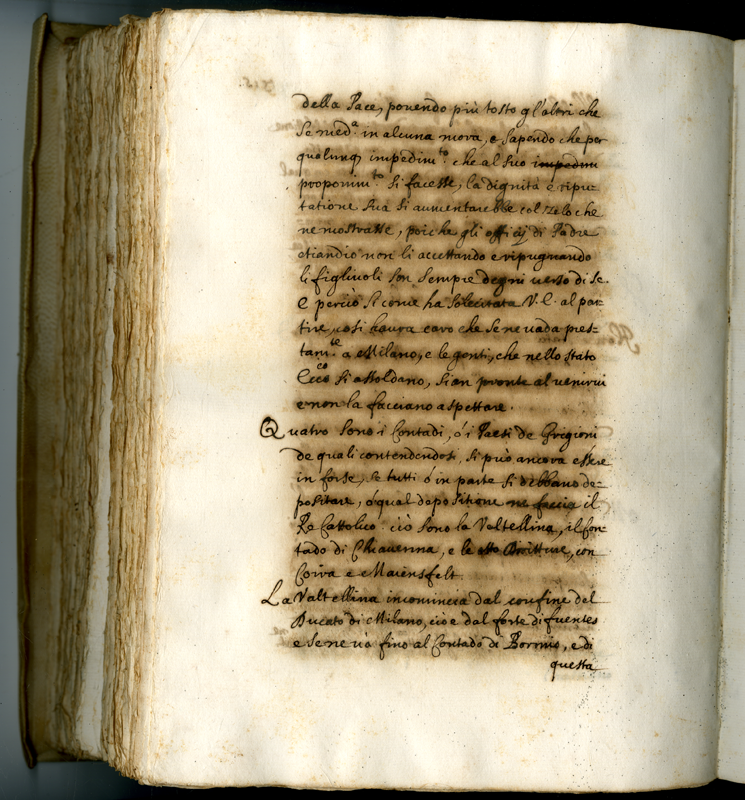 della Pace, ponendo più tosto gl'altri che
Se med.ᵃ in alcuna mora, e sapendo che per
qualunq, impedim.ᵗᵒ che al suo impedim
proponim.ᵗᵒ si facesse, la dignità e ripu-
tatione sua si aumentarebbe col zelo che
ne mostrasse, poiche gli officij di Padre
etiandio non li accettando e ripugnando
li figliuoli son sempre degni verso di se.
E perciò si come ha solecitata V. E. al par-
tire, così haura caro che se ne vada pres-
tam.ᵗᵉ a Milano, e le genti, che nello stato
Ecc.ᶜᵒ si assoldano, sian pronte al venirui
e non la facciano aspettare.
Quatro sono i Contadi, ó i Paesi de Grigioni
de quali contendendosi, si può ancora essere
in forse, se tutti ó in parte si debbano de-
positare, ó qual depositione ne faccia il
Re Cattolico. ciò sono la Valtellina, il Con-
tado di Chiauenna, e le otto Dritture, con
Coira e Maiensfelt.
La Valtellina incomincia dal confine del
Ducato di Milano, cioe dal forte di fuentes
e se ne và fino al Contado di Bormio, e di
questa